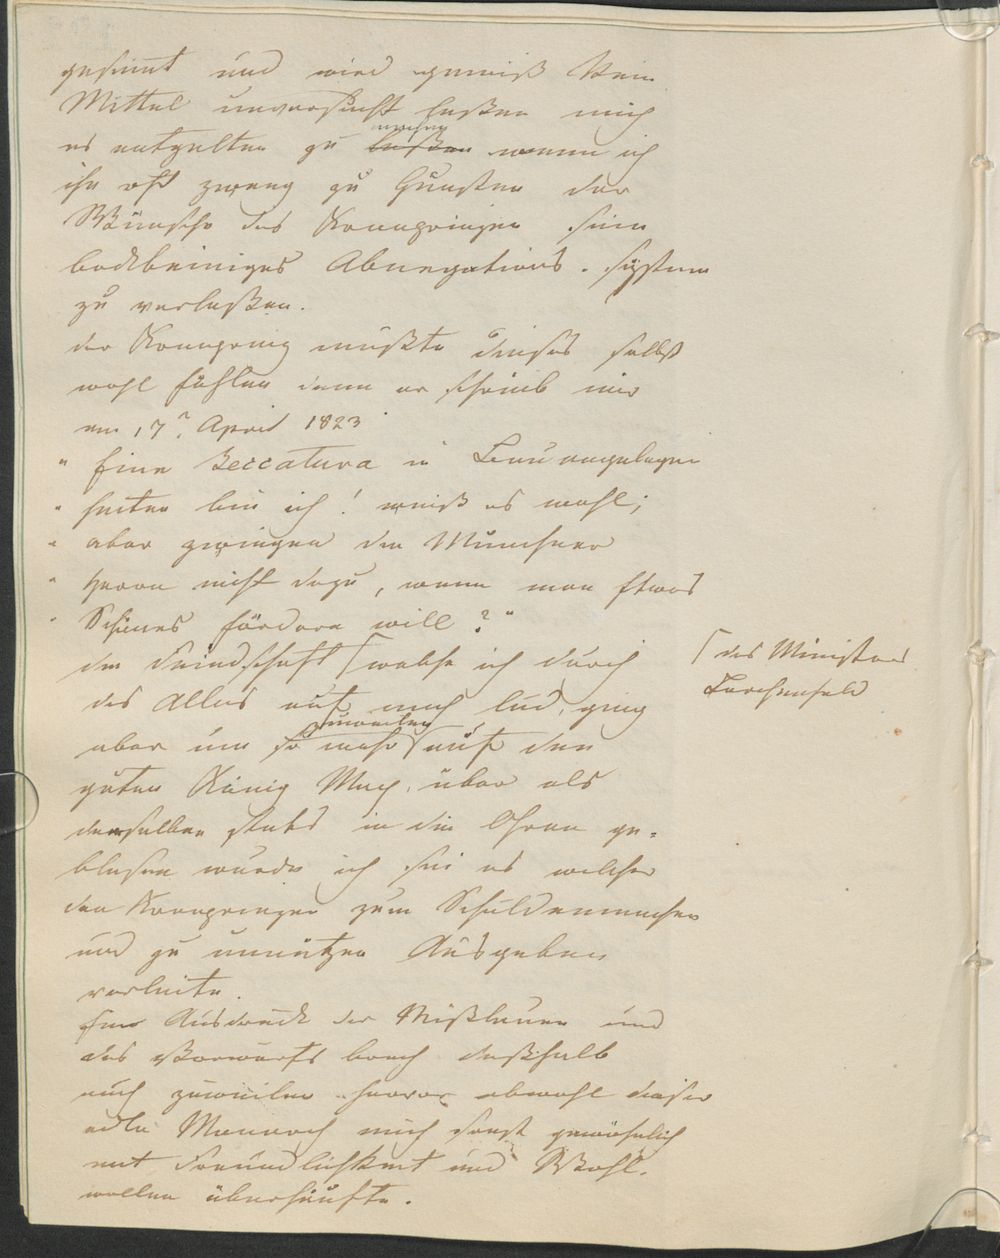 gesinnt und wird gewiß kein
Mittel unversucht laßen mich
es entgelten zu laßen wenn ich
machen
ihn oft zwang zu Gunsten der
Wünsche des Kronprinzen sein
bockbeiniges Abnegations-System
zu verlaßen.
der Kronprinz mußte dieses selbst
wohl fühlen denn er schrieb mir
am 17n. April 1823
" Eine Seccatura in Bauangelegen
" heiten bin ich! weiß es wohl;
" aber zwingen die Münchner
" Herrn nicht dazu, wenn man Etwas
" Schönes fördern will?"
die Feindschaft ⌈ welche ich durch
⌈ des Ministers
Lerchenfeld
das Alles auf mich lud, ging
aber um so mehr auf den
zuweilen
guten König Max über als
demselben stets in die Ohren ge-
blasen wurde ich sei es welcher
den Kronprinzen zum Schuldenmachen
und zu unnützen Ausgaben
verleite.
Ein Ausdruck der Mißlaune und
des Vorwurfs brach deßhalb
auch zuweilen hervor obwohl dieser
edle Monarch mich sonst gewöhnlich
mit Freundlichkeit und Wohl-
wollen überhäufte.